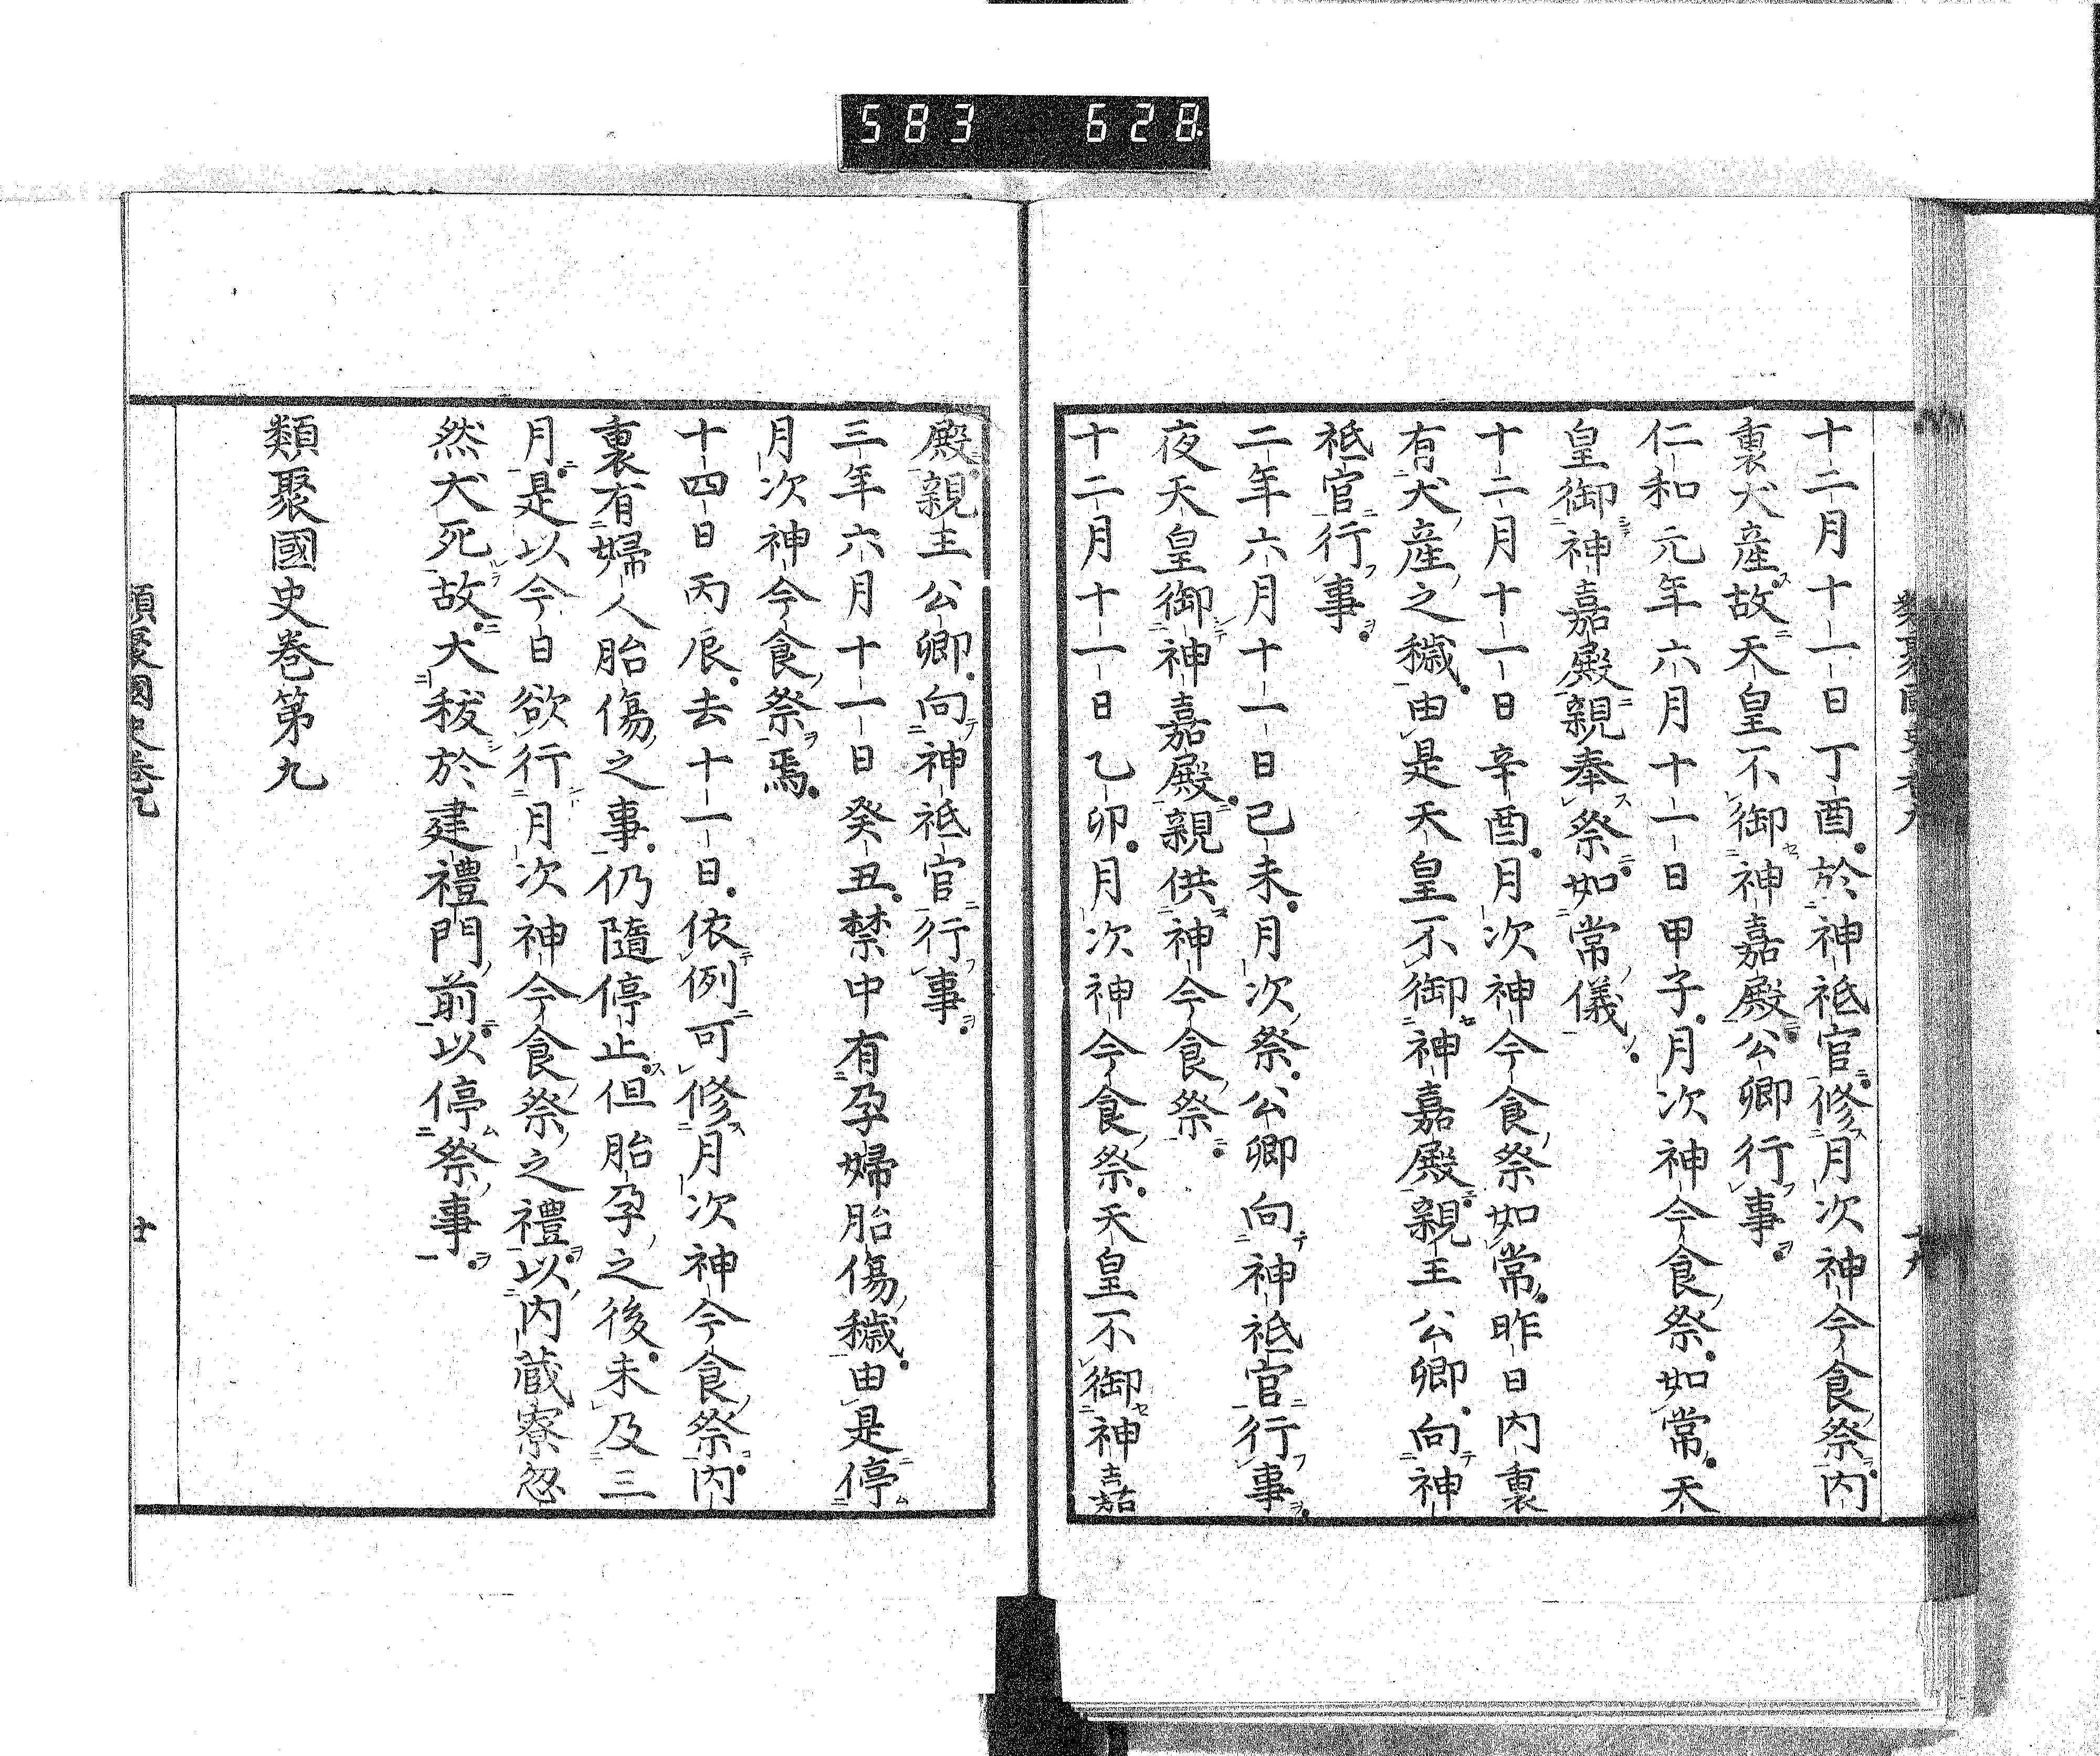 583 628
類聚國史卷九 十九
十二月十一日丁酉於神祇官修月次神今食祭内
裏犬産故天皇不御神嘉殿公卿行事
仁和元年六月十一日甲子月次神今食祭如常天
皇御神嘉殿親奉祭如常儀
十二月十一日辛酉月次神今食祭如常昨日内裏
有犬産之穢由是天皇不御神嘉殿親王公卿向神
祇官行事
二年六月十一日己未月次祭公卿向神祇官行事
夜天皇御神嘉殿親供神今食祭
十二月十一日乙卯月次神今食祭天皇不御神嘉
殿親王公卿向神祇官行事
三年六月十一日癸丑禁中有孕婦胎傷穢由是停
月次神今食祭焉
十四日丙辰去十一日依例可修月次神今食祭内
裏有婦人胎傷之事仍隨停止但胎孕之後未及三
月是以今日欲行月次神今食祭之禮以内蔵寮忽
然犬死故大秡於建禮門前以停祭事
類聚國史卷第九
類聚國史卷九 廿